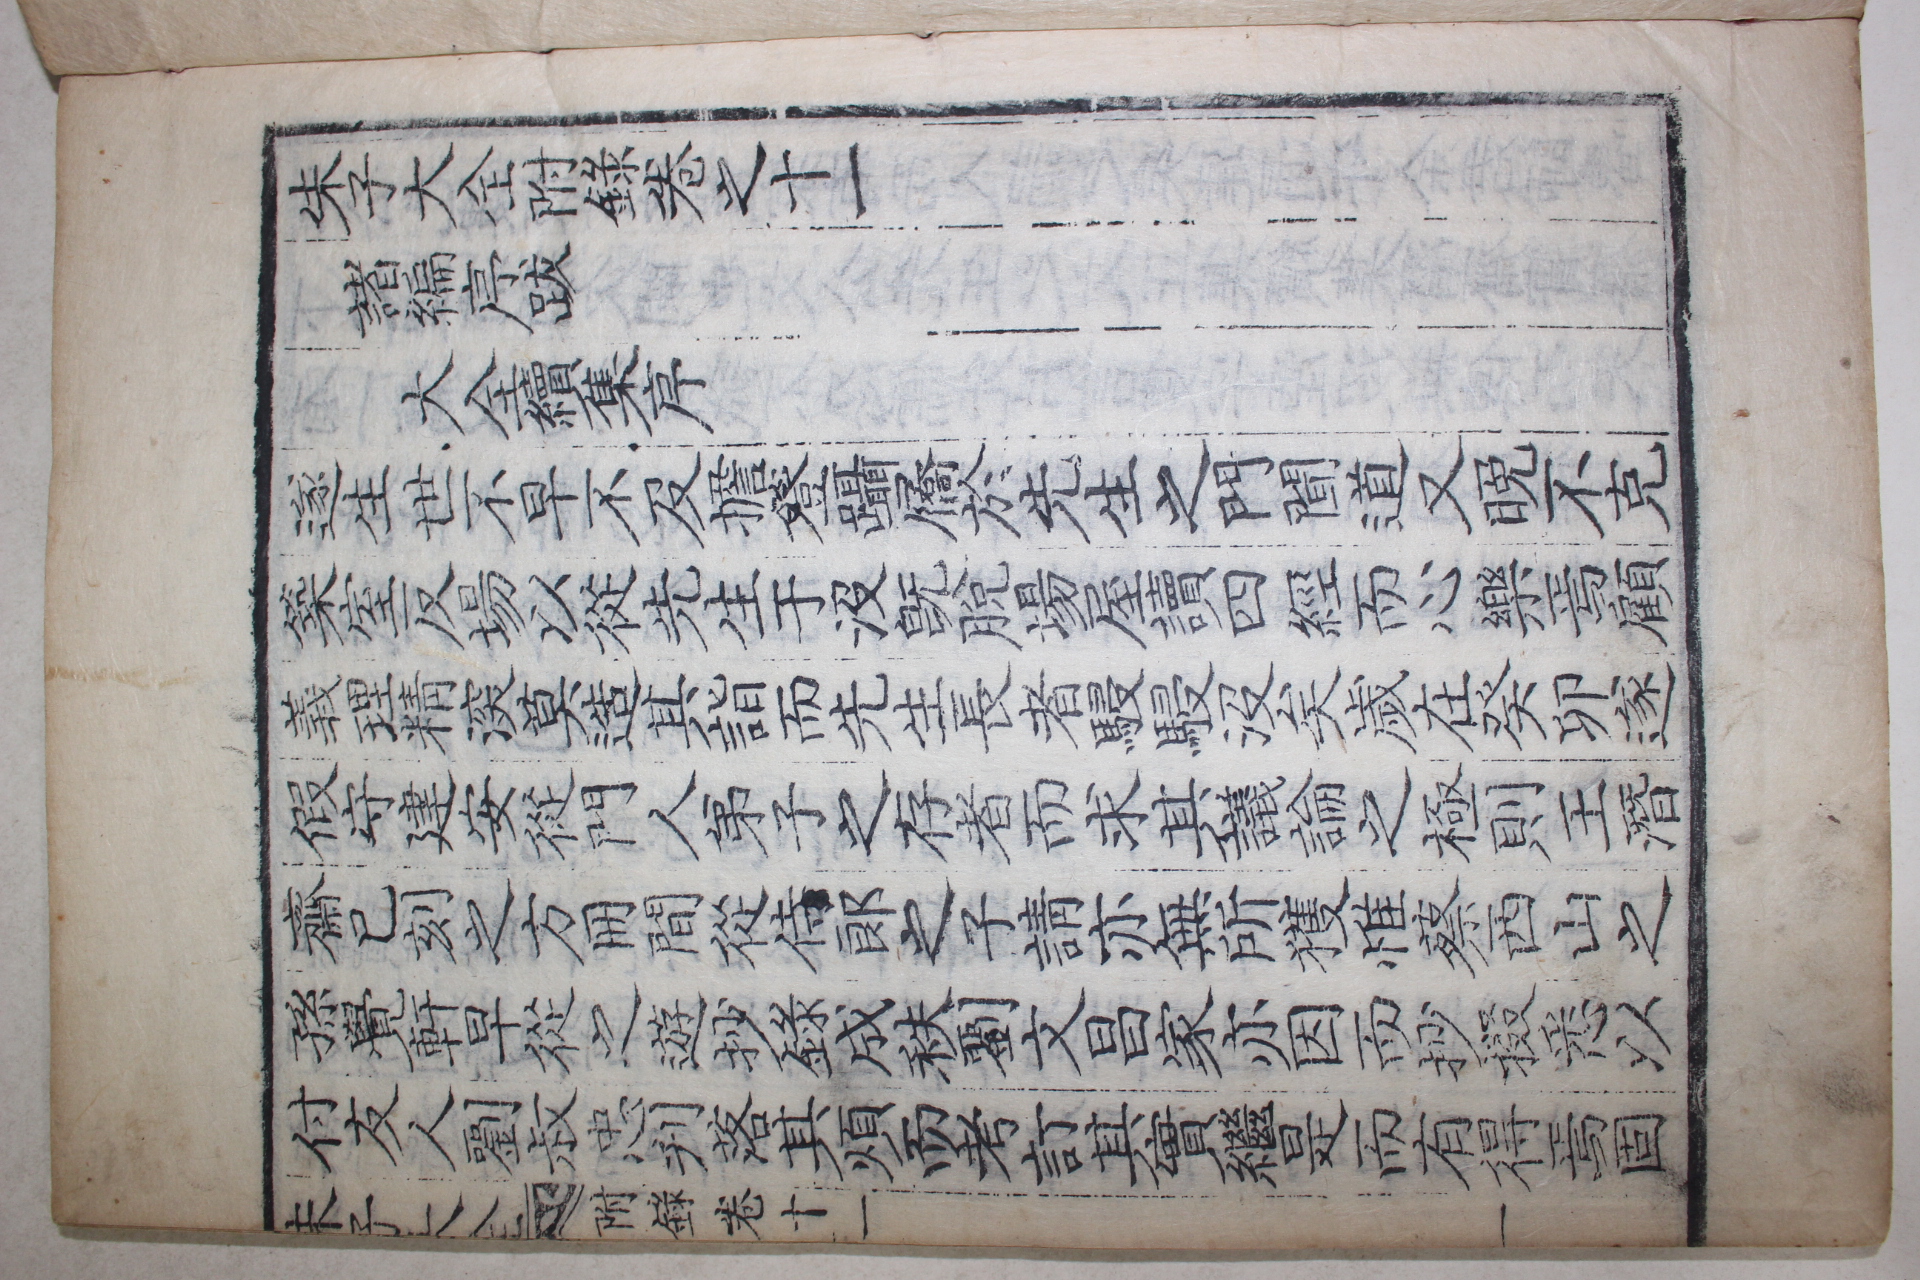 朱子大全附錄卷之十一
諸編序跋
大全續集序
遂生世不早不及擔簦躡屩於先生之門聞道又晚不克
築室反場以從先生于沒旣脫場屋讀四經而心樂焉顧
義理精深莫造其詣而先生長者駸駸沒矣歲在癸卯遂
假守建安從門人弟子之存者而求其議論之極則王潛
齋已刻之方冊間從侍郎之子請亦無所獲惟蔡西山之
孫覺軒早從之遊抄錄成秩劉文昌家亦因而抄掇悉以
付友人劉叔忠刋落其煩而考訂其實繼是而有得焉固
朱子大全 附錄卷十一 一